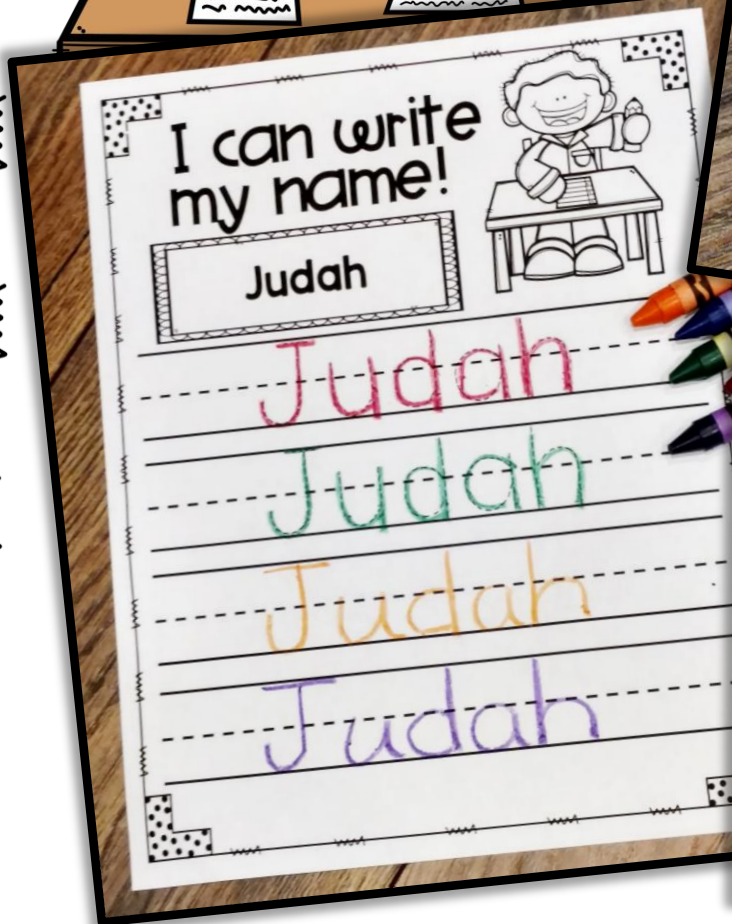 I can write
my name!
Judah
Judah
Judah
Judah
Judah